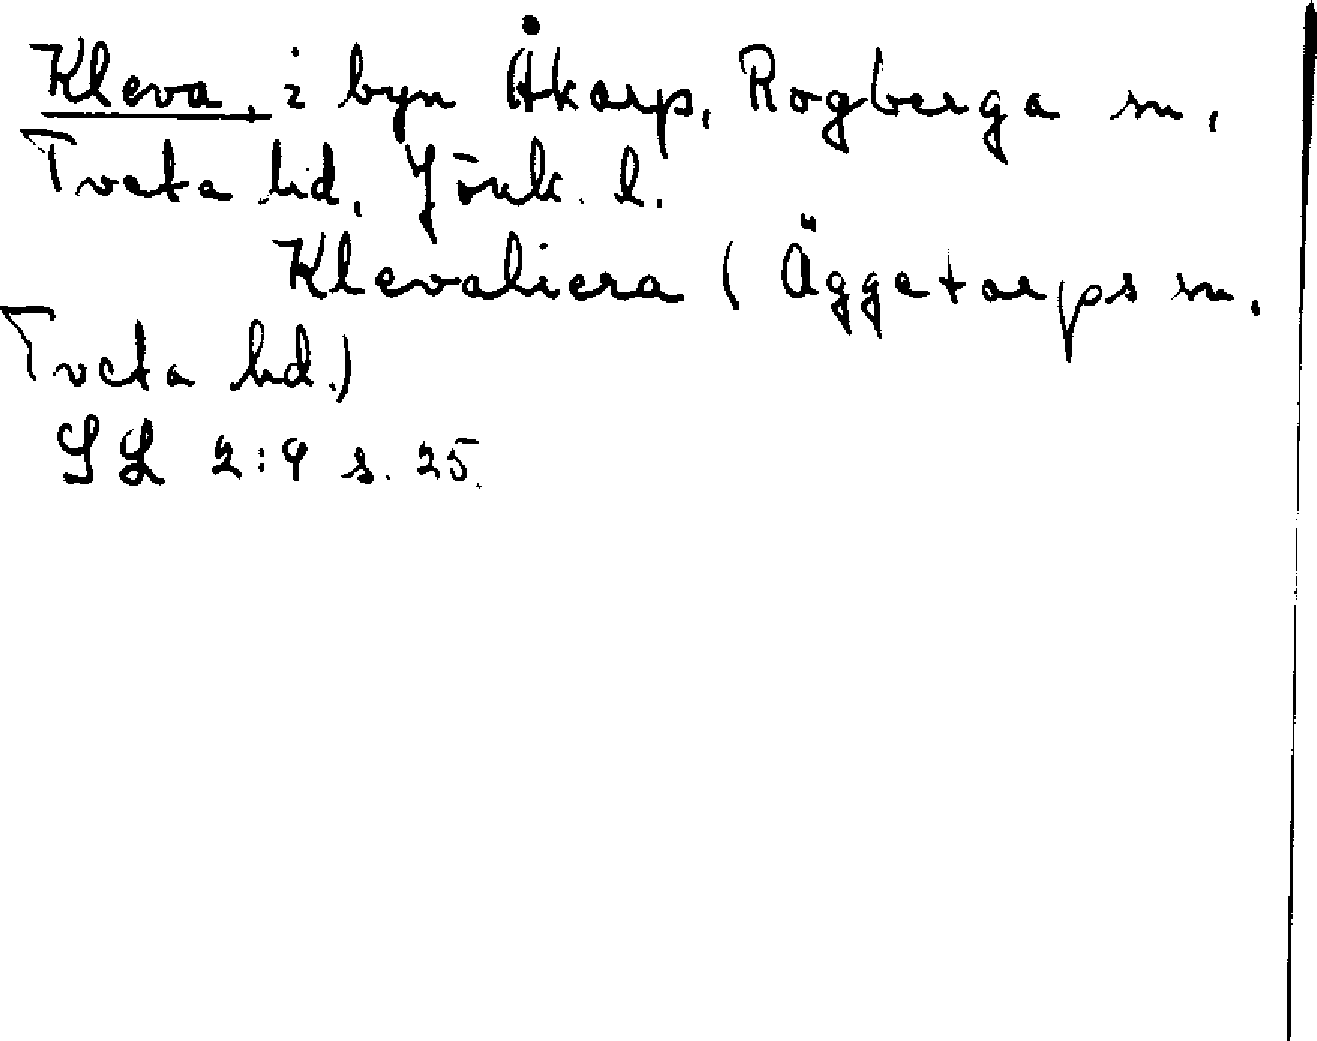 Kleva, i byn Åkarp, Rogberga sn,
Tveta hd, Jönk. l.
Klevaliera (Äggetorps sn.
Tveta hd.)
SL 2:9 s. 25.